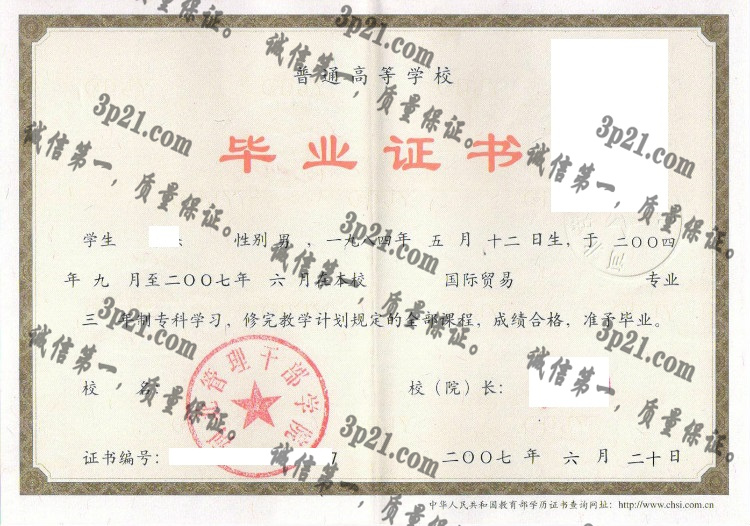 普通高等学校
毕业证书
学生 性别 男 ，一九八四年 五 月 十二 日生，于 二〇〇四
年 九 月至二〇〇七年 六 月在本校 国际贸易 专业
三 年制专科学习，修完教学计划规定的全部课程，成绩合格，准予毕业。
校 名
管理干部学院
校（院）长：
证书编号： 7
二〇〇七 年 六 月 二十日
中华人民共和国教育部学历证书查询网址：http://www.chsi.com.cn
3p21.com
诚信第一，质量保证。
3p21.com
诚信第一，质量保证。
3p21.com
诚信第一，质量保证。
3p21.com
诚信第一，质量保证。
3p21.com
诚信第一，质量保证。
3p21.com
诚信第一，质量保证。
3p21.com
诚信第一，质量保证。
3p21.com
诚信第一，质量保证。